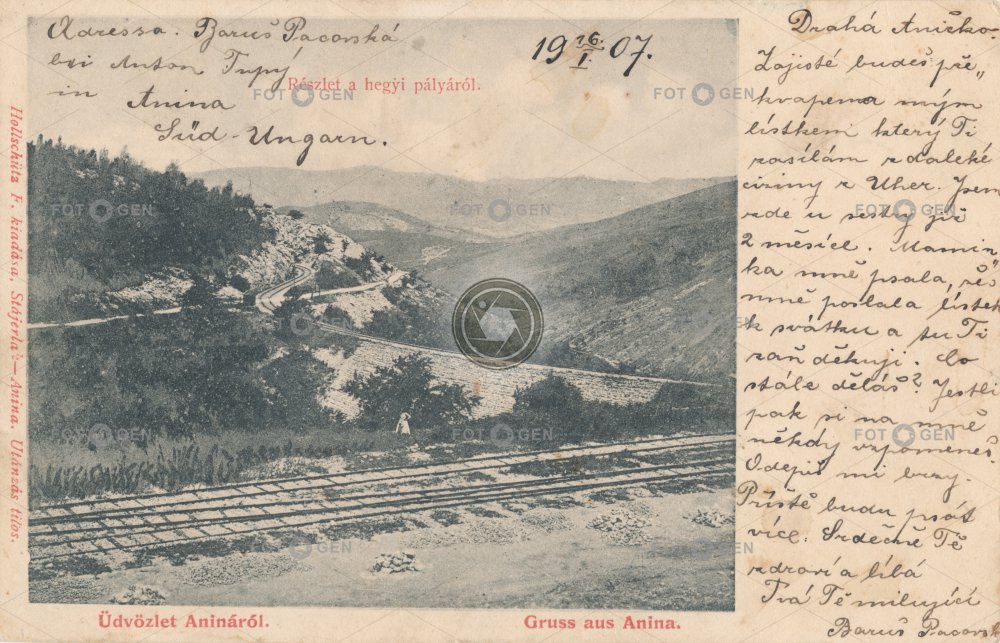 Adressa. Baruš Pacovská
bei Anton Trpý
in Anina
Süd-Ungarn.
19 16/I. 07.
Részlet a hegyi pályáról.
Drahá Aničko.
Zajisté budeš pře„
kvapena mým
lístkem který Ti
zasílám z daleké
ciziny z Uher. Jsem
zde u sestry již
2 měsíce. Mamin
ka mně psala, žes
mně poslala lístek
k svátku a tu Ti
zaň děkuji. Co
stále děláš? Jestli
pak si na mně
někdy vzpomeneš.
Odepiš mi brzy.
Příště budu psát
více. Srdečně Tě
zdraví a líbá
Tvá Tě milující
Baruš Pacovsk
Hollschütz F. kiadása, Stájerlak—Anina. Utánzás tilos.
Üdvözlet Anináról.
Gruss aus Anina.
FOTOGEN